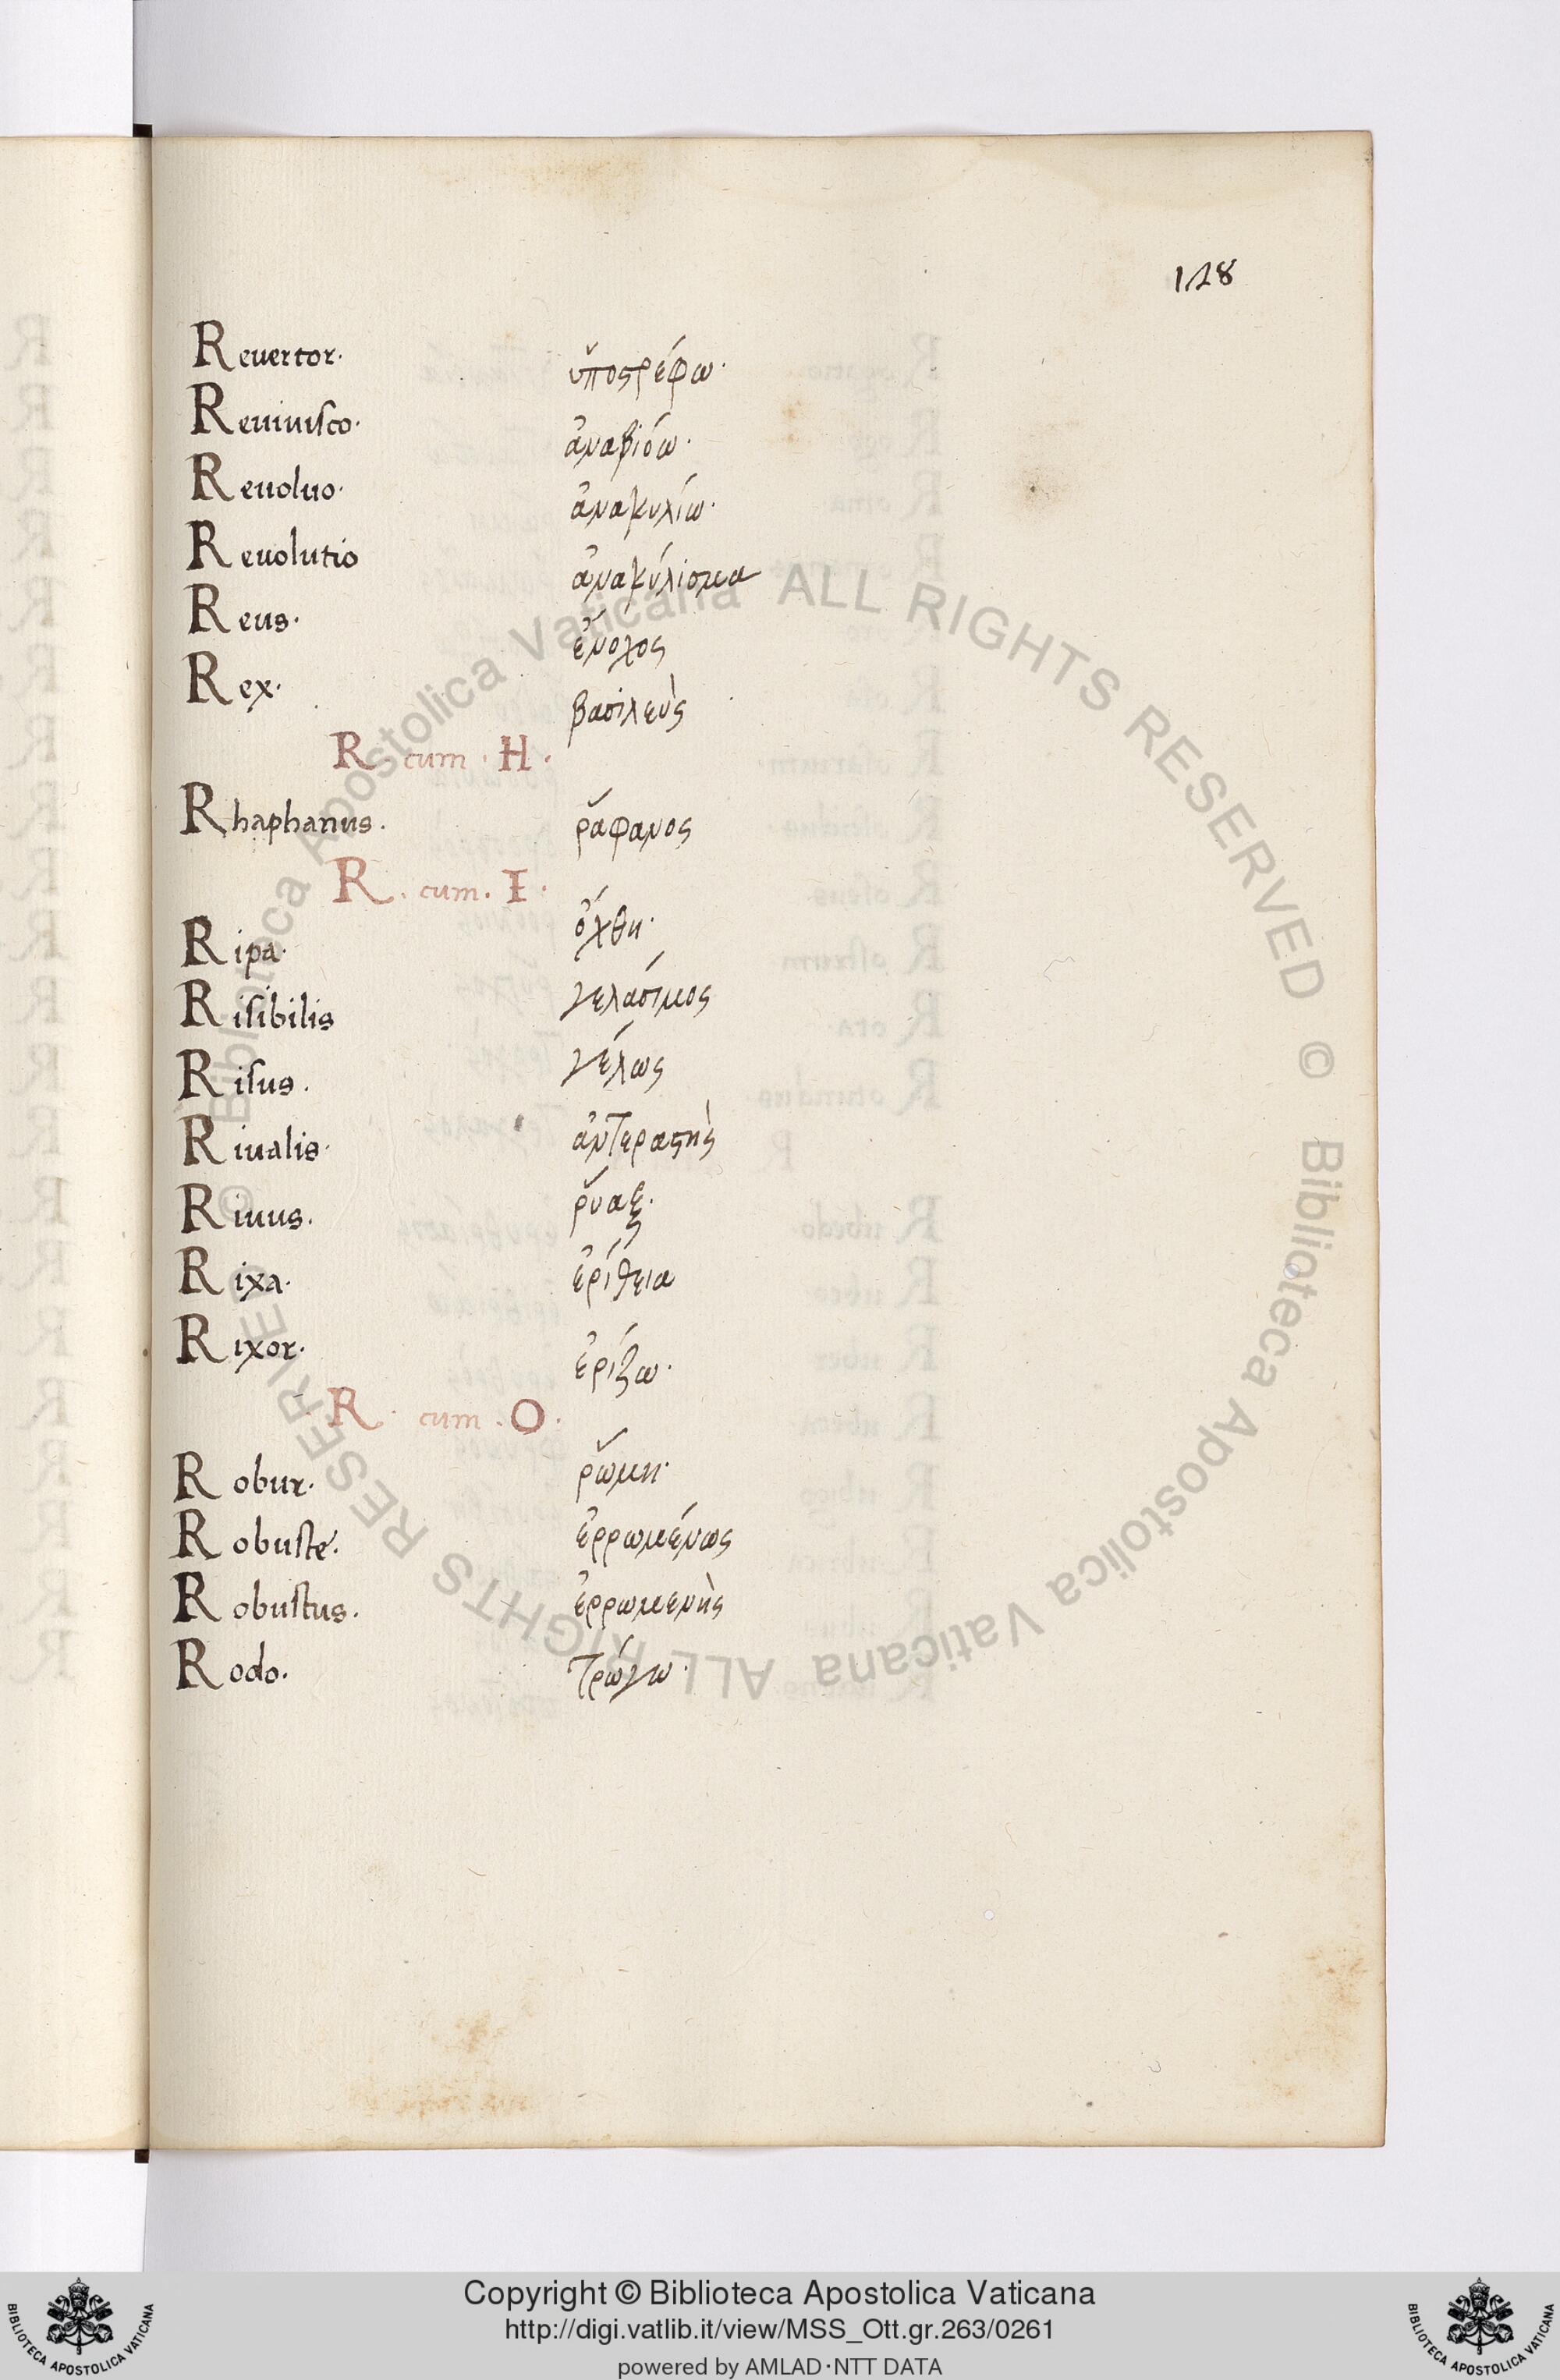 128
Reuertor. ὑποστρέφω.
Reuiuisco. ἀναβιόω.
Reuoluo. ἀνακυλίω.
Reuolutio ἀνακύλισμα
Reus. ἔνοχος
Rex. βασιλεὺς
R. cum. H.
Rhaphanus. ῥάφανος
R. cum. I.
Ripa. ὄχθη.
Risibilis γελάσιμος
Risus. γέλως
Riualis. ἀντεραστὴς
Riuus. ῥύαξ.
Rixa. ἐρίθεια
Rixor. ἐρίζω.
R. cum. O.
Robur. ῥώμη.
Robuste. ἐρρωμένως
Robustus. ἐρρωμενὴς
Rodo. τρώγω.
© Biblioteca Apostolica Vaticana ALL RIGHTS RESERVED © Biblioteca Apostolica Vaticana ALL RIGHTS RESERVED
Copyright © Biblioteca Apostolica Vaticana
http://digi.vatlib.it/view/MSS_Ott.gr.263/0261
powered by AMLAD·NTT DATA
BIBLIOTECA APOSTOLICA VATICANA
BIBLIOTECA APOSTOLICA VATICANA